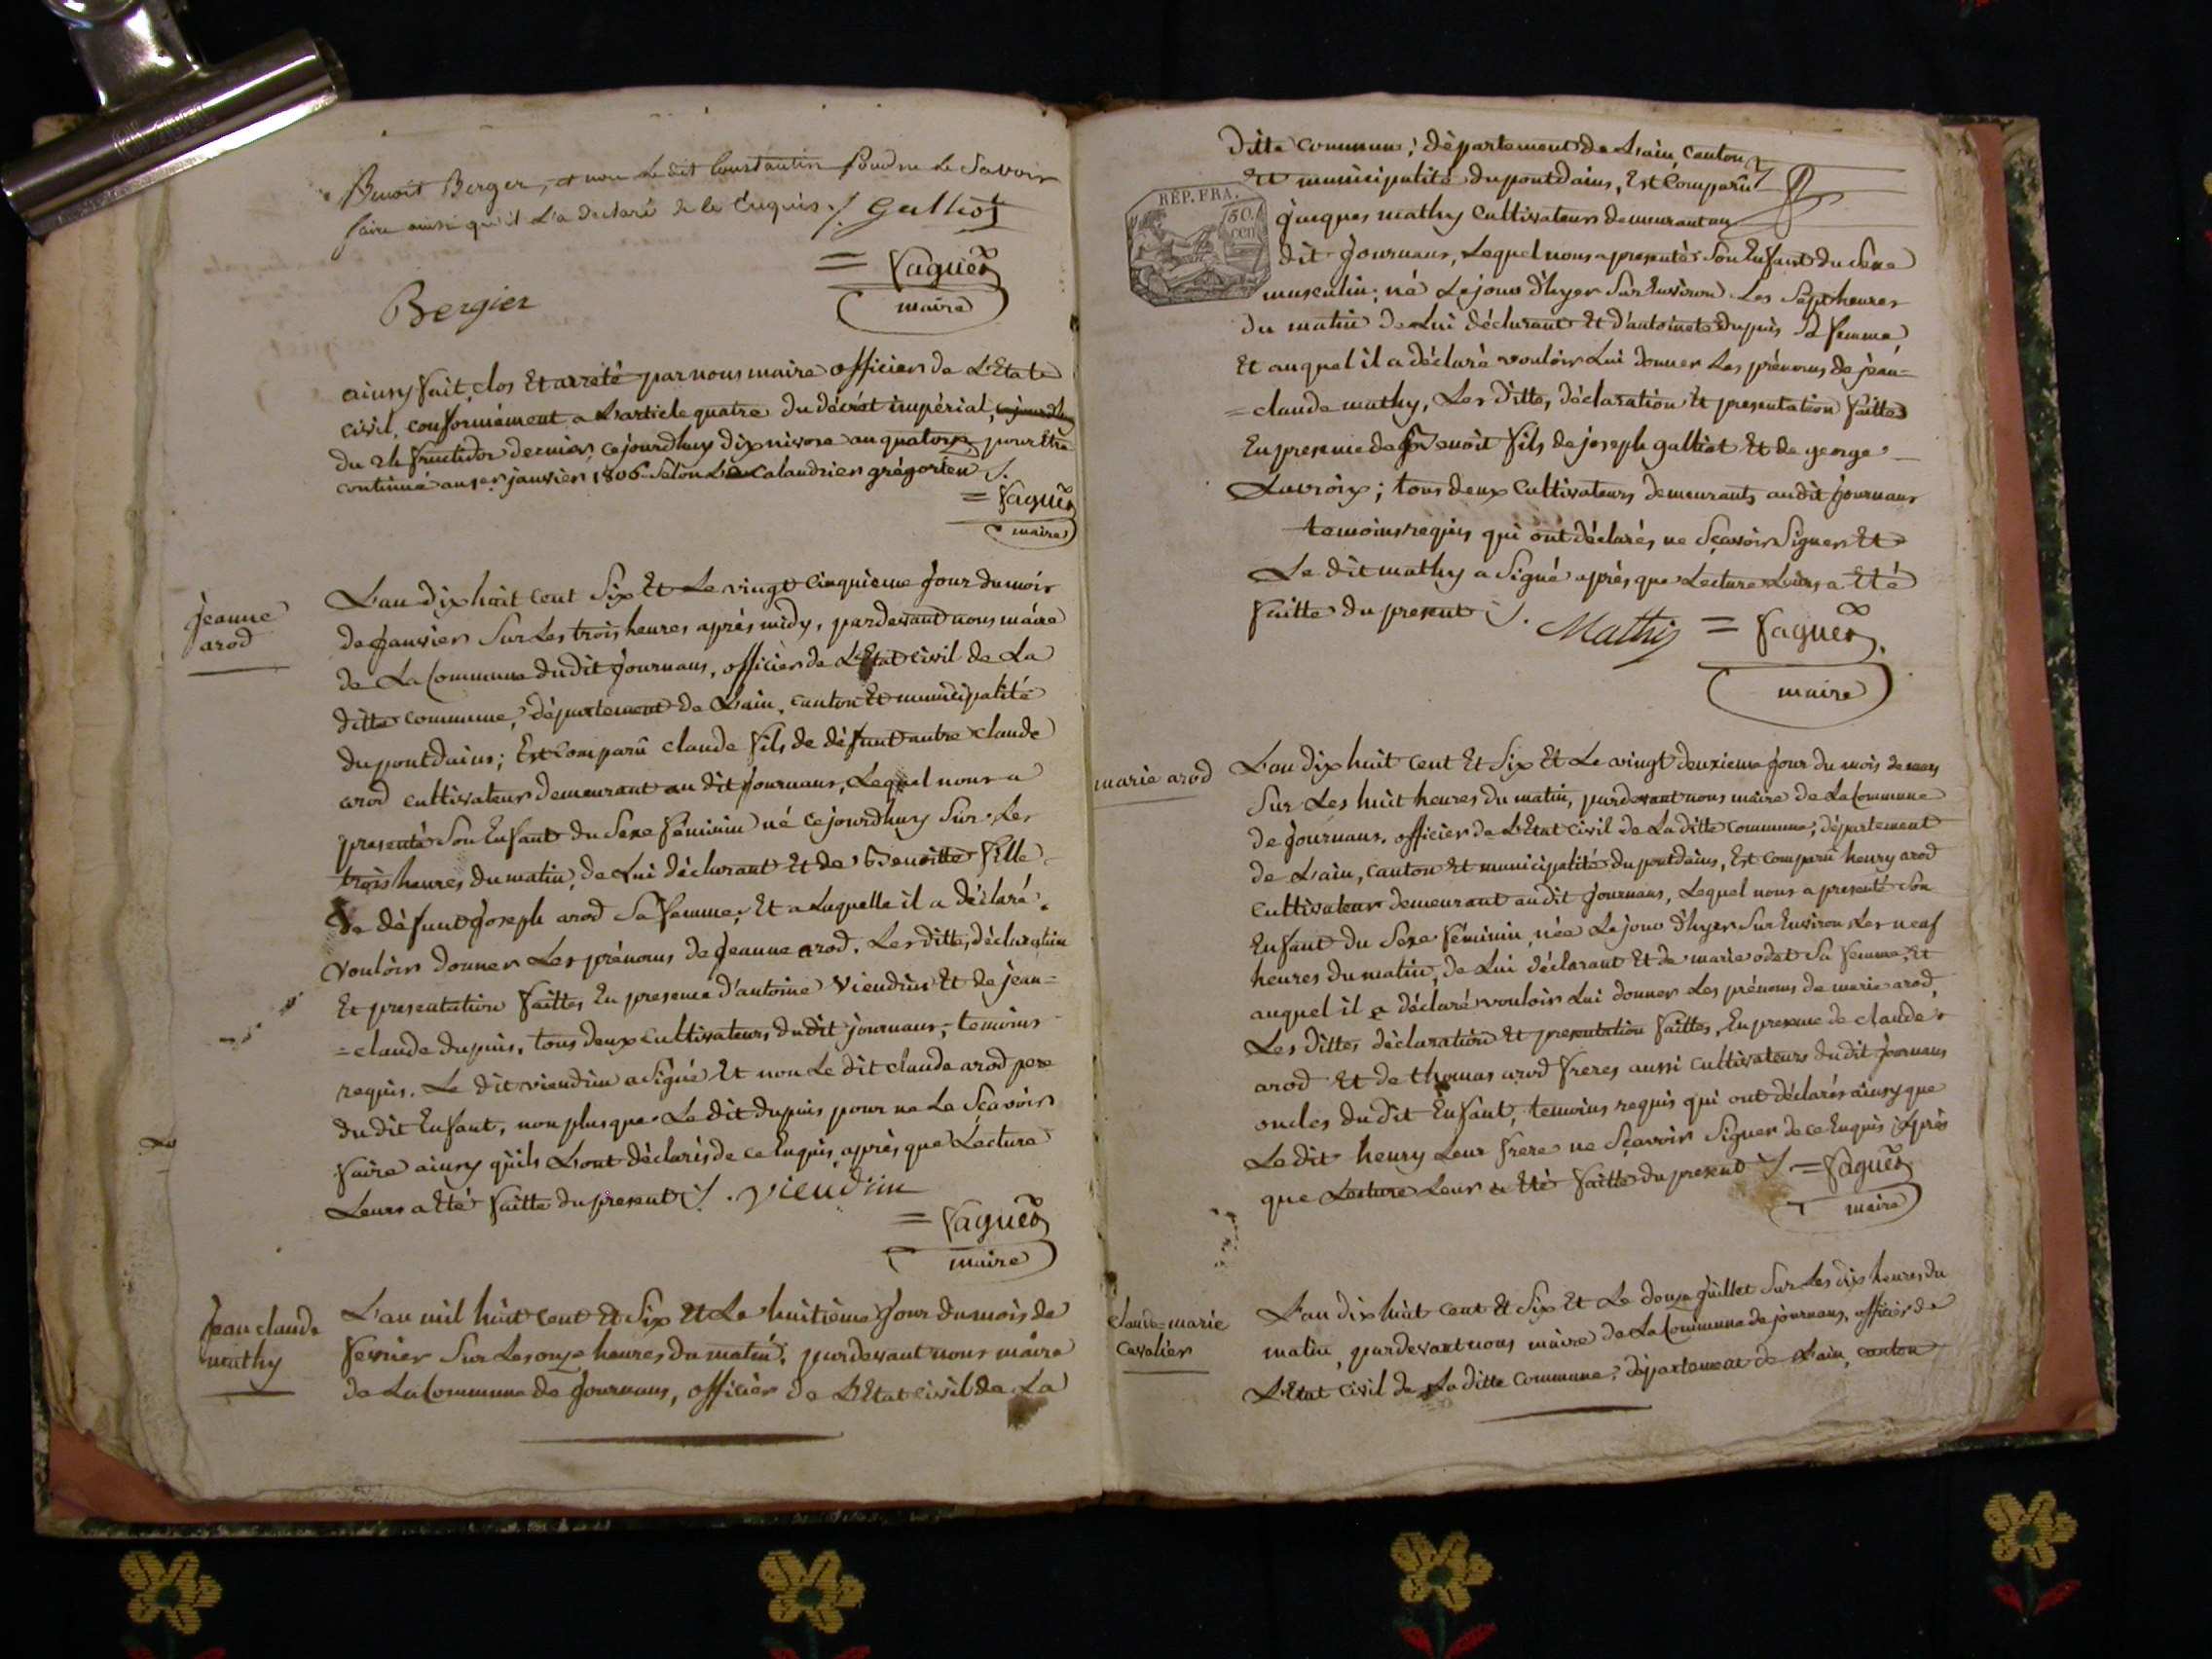 Benoit Berger, et non le dit Constantin pour ne le Savoir
faire ainsi qu'il L'a declaré de ce Enquis ./. Galliot
= Faguet
maire
Bergier
ainsy fait, clos Et arreté par nous maire officier de L'Etat
civil, conformément a L'article quatre du décret impérial,
du 24 fructidor dernier, cejourdhuy dix nivose an quatorze pour Etre
continué au 1er janvier 1806 Selon Le Calandrier grégorien ./.
= Faguet
maire
Jeanne
arod
L'an dix huit cent Six Et Le vingt Cinquieme Jour du mois
de Janvier Sur Les trois heures après midy, pardevant nous maire
de La Commune du dit Journans, officier de L'Etat civil de La
ditte commune, département de L'ain, canton Et municipalité
du pontdains; Est Comparû claude fils de défunt autre claude
arod cultivateur demeurant au dit Journans, Lequel nous a
presenté Son Enfant du Sexe féminin né cejourdhuy Sur Les
trois heures du matin, de Lui déclarant Et de Benoitte fille
De défunt Joseph arod Sa femme, Et a Laquelle il a déclaré
vouloir donner Les prénoms de Jeanne arod. Les dittes déclaration
Et presentation faittes En presence d'antoine Viendrin Et de jean=
=claude dupuis, tous deux cultivateurs du dit journans, temoins
requis. Le dit viendrin a Signé Et non Le dit claude arod pere
du dit Enfant, non plus que Le dit dupuis pour ne Le Sçavoir
faire ainsy qu'ils L'ont déclarés de ce Enquis, après que Lecture
Leurs a Eté faitte du present ./. viendrin
= Faguet
maire
Jean claude
mathy
L'an mil huit cent Et Six Et Le huitieme Jour du mois de
fevrier Sur Les onze heures du matin, pardevant nous maire
de La Commune de Journans, officier de L'Etat civil de La
ditte commune, département de L'ain, canton
Et municipalité du pontdains, Est Comparû
RÉP. FRA.
50
cen
Jacques mathy Cultivateur demeurant au
dit Journans, Lequel nous a presenté Son Enfant du Sexe
masculin, né Le jour d'hyer Sur Environ Les Sept heures
du matin de Lui déclarant Et d'antoinete dupuis Sa femme,
Et auquel il a déclaré vouloir Lui donner Les prénoms de jean=
=claude mathy, Les dittes, déclaration Et presentation faittes
En presence de Benoit fils de joseph galliot Et de george
Lavroix; tous deux Cultivateurs demeurants audit Journans
temoins requis qui ont déclarés ne Sçavoir Signer Et
Le dit mathy a Signé après que Lecture Leurs a Eté
faitte du present ./. Mathis = Faguet
maire
marie arod
L'an dix huit cent Et Six Et Le vingt deuxieme Jour du mois de mars
Sur Les huit heures du matin, pardevant nous maire de La Commune
de Journans, officier de L'Etat civil de La ditte commune, département
de L'ain, canton Et municipalité du pontdains, Est comparû henry arod
Cultivateur demeurant audit Journans, Lequel nous a presenté Son
Enfant du Sexe féminin, née Le jour d'hyer Sur Environ Les neuf
heures du matin, de Lui déclarant Et de marie odet Sa femme, Et
auquel il a déclaré vouloir Lui donner Les prénoms de marie arod,
Les dittes déclaration Et presentation faittes, En presence de claude
arod Et de thomas arod freres aussi cultivateurs du dit Journans
oncles du dit Enfant, temoins requis qui ont déclarés ainsy que
Le dit henry Leur frere ne Sçavoir Signer de ce Enquis Après
que Lecture Leur a Eté faitte du present ./. = Faguet
maire
Claude marie
Cavalier
L'an dix huit cent Et Six Et Le douze Juillet Sur Les dix heures du
matin, pardevant nous maire de La Commune de journans, officier de
L'Etat civil de La ditte commune, département de L'ain, canton